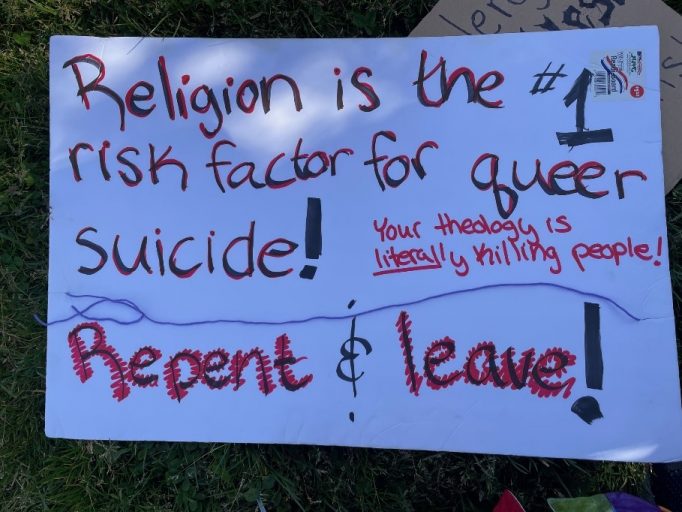 Religion is the #1
risk factor for queer
suicide!
Your theology is
literally killing people!
Repent & leave!